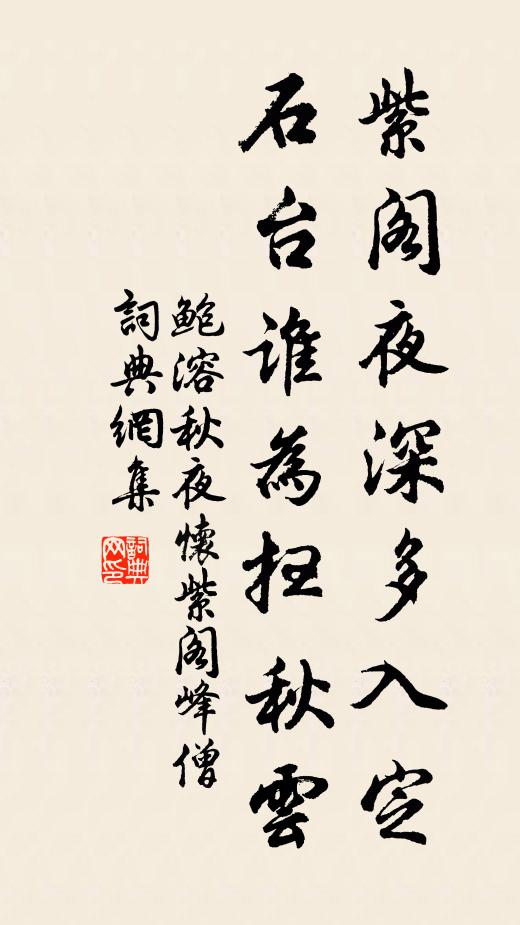 紫阁夜深多入定
石台谁為扫秋雲
鲍溶秋夜懷紫阁峰僧
詞典網集
詞典网印